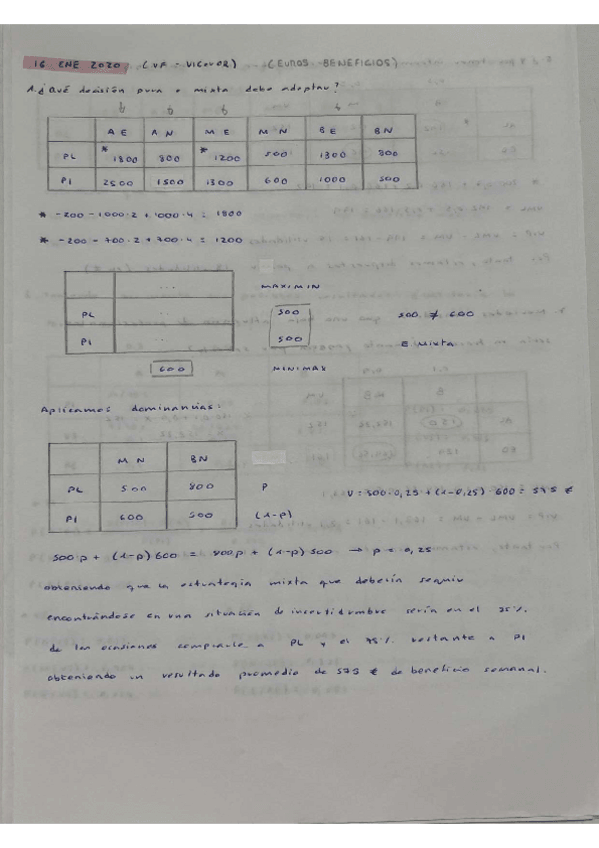 16 ENE 2020 (VF - VICOVOR) (EUROS - BENEFICIOS)
1. ¿Qué decisión pura o mixta debe adoptar?
AE AN ME MN BE BN
PL * 1800 800 * 1200 500 1300 800
PI 2500 1500 1300 600 1000 500
* -200 - 1000·2 + 1000·4 = 1800
* -200 - 700·2 + 700·4 = 1200
... MAXIMIN
PL ... 500 500 ≠ 600
PI ... 500 E Mixta
600 MINIMAX
Aplicamos dominancias:
MN BN
PL 500 800 P V = 500·0,25 + (1-0,25) 600 = 575 €
PI 600 500 (1-p)
500p + (1-p) 600 = 800p + (1-p) 500 → p = 0,25
obteniendo que la estrategia mixta que debería seguir
encontrándose en una situación de incertidumbre sería en el 25%
de las ocasiones comprarle a PL y el 75% restante a PI
obteniendo un resultado promedio de 575 € de beneficio semanal.